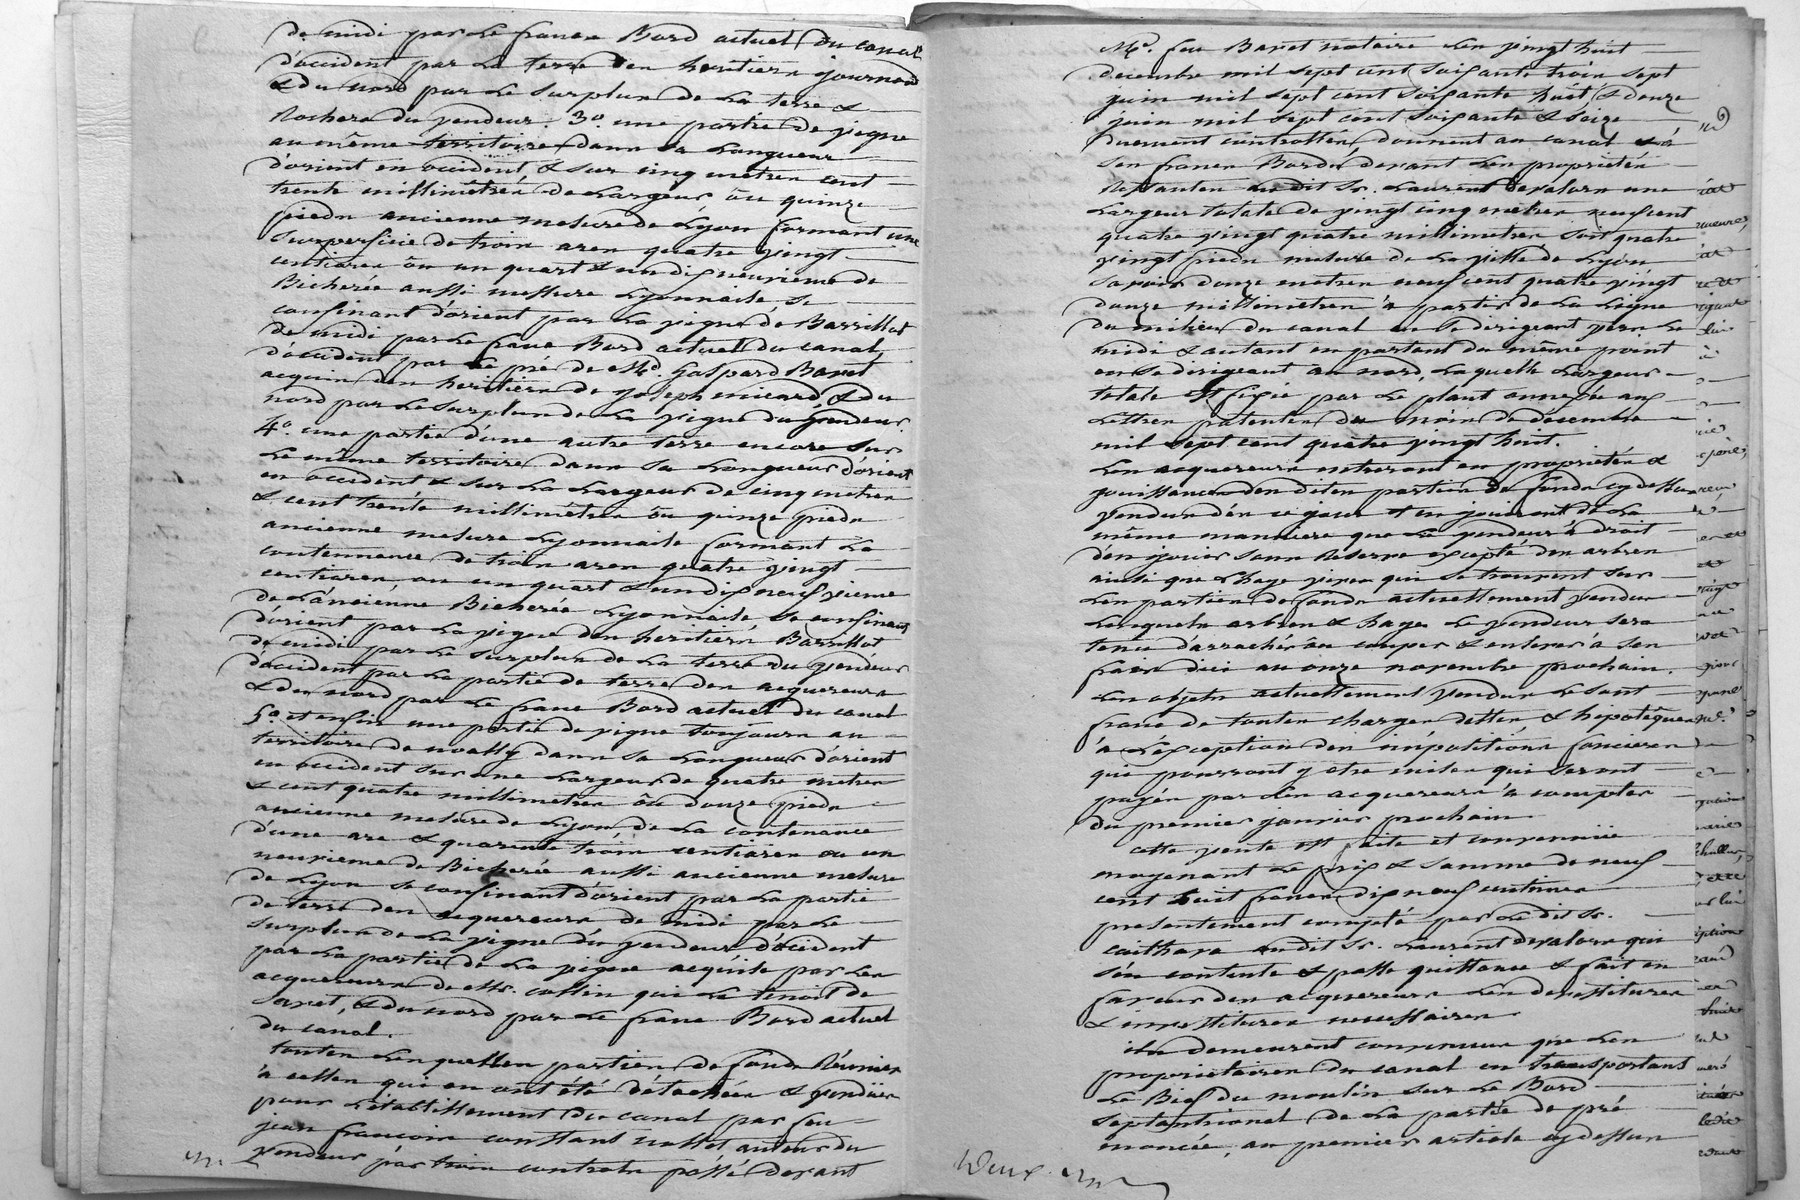 de midi par le franc Bord actuel du canal
d'occident par la terre des heritiers journoud
& du nord par le surplus de la terre &
Rochers du vendeur. 3º. une partie de vigne
au même territoire dans sa Longueur
d'orient en occident & sur cinq metres cent
trente millimêtres de Largeur ôu quinze
pieds ancienne mesure de Lyon formant une
surperficie de trois ares quatre vingt
centiares ôu un quart & un dix neuvieme de
Bicherée aussi messure Lyonnaise se
confinant d'orient par la vigne de Barrillot
de midi par le franc Bord actuel du canal,
d'occident par le pré de Md. Gaspard Banet
acquis des heritiers de joseph micard & du
nord par le surplus de la vigne du vendeur.
4º. une partie d'une autre terre encore sur
le même territoire dans sa Longueur d'orient
en occident & sur la Largeur de cinq metres
& cent trente millimêtres ôu quinze pieds
ancienne mesure Lyonnaise formant la
contennence de trois ares quatre vingt
centiares, ou un quart & un dix neuf vieme
de L'anciénne Bicherée Lyonnaise, se confinant
d'orient par la vigne des heritiers Barrillot
de midi par le surplus de la terre du vendeur
d'occident par la partie de terre des acquereurs
& du nord par le franc Bord actuel du canal
5º. et enfin une partie de vigne toujours au
territoire de nouilly dans sa Longueur d'orient
en occident sur une Largeur de quatre metres
& cent quatre millimetres ôu douze pieds
ancienne mesure de Lyon de la contenance
d'une are & quarente trois centiares ou un
neuvieme de Bicherée aussi ancienne mesure
de Lyon se confinant d'orient par la partie
de terre des acquereurs de midi par le
surplus de la vigne du vendeur d'occident
par la partie de la vigne acquise par les
acquereurs de Mr. collin qui la tenoit de
Saret, & du nord par le franc Bord actuel
du canal.
toutes lesquelles parties de fonds Réunies
à celles qui en ont été détachées & vendües
pour L'établissement du canal par feu
jean francois constans vallet, auteur du
vendeur par trois contrats passé devant
Me. feu Banet notaire les vingt huit
decembre mil sept cent soixante trois sept
juin mil sept cent soixante huit, & douze
juin mil sept cent soixante & seize
duement controttés, donnent au canal & à
ses francs Bords devant les proprietés
Restantes audit Sr. Laurent devalors une
Largeur totale de vingt cinq metres neuf cent
quatre vingt quatre millimetres soit quatre
vingt pieds mesure de la ville de Lyon
savoir douze metres neuf cent quatre vingt
douze millimetres à partir de la Ligne
du milieu du canal en se dirigeant vers le
midi & autant en partant du même point
en se dirigeant au nord, Laquelle Largeur
totale est fixée par le plant annexée aux
Lettres patentes du mois de décembre
mil sept cent quatre vingt huit.
Les acquereurs entreront en proprietés &
jouissances desdites parties de fonds cy dessus
vendus dès ce jour et en jouiront de la
même maniere que le vendeur à droit
d'en jouir sans Réserve excepté des arbres
ainsi que L'haye vives qui se trouvent sur
les parties de fonds actuellement vendus
Lesquels arbres & hayes le vendeur sera
tenu d'arracher ôu couper & enlever à ses
frais dici au onze novembre prochain.
Les objets actuellement vendus le sont
francs de toutes charges dettes & hipotêques
à L'éxception des inpositions foncieres
qui pourront y être mises qui seront
payés par les acquereurs à compter
du premier janvier prochain.
cette vente est faite et convenüe
moyenant le prix & somme de neuf
cent huit francs dix neuf centimes
presentement compté par le dit Sr.
caithava audit Sr. Laurent devalors qui
s'en contente & passe quittance & fait en
faveur des acquereurs les devestitures
& investitures necessaires.
ils demeurent convenus que les
proprietaires du canal en transportant
le Bief du moulin sur le Bord
Septentrional de la partie de pré
enoncée, au premier article cy dessus
Deux.